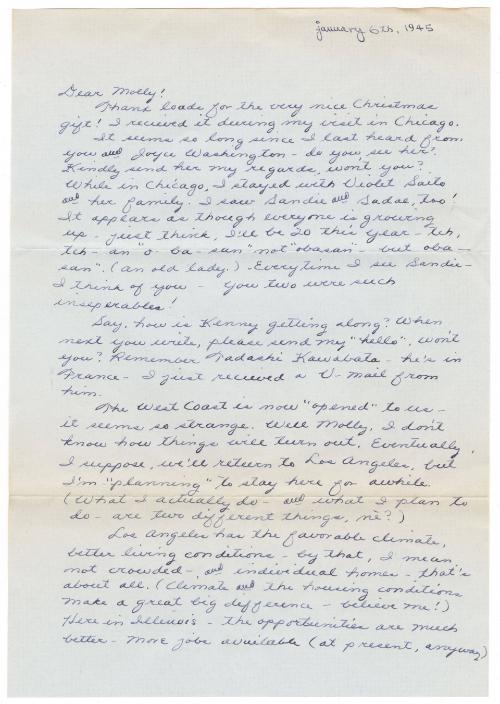 January 6th, 1945
Dear Molly!
Thank loads for the very nice Christmas
gift! I recieved it during my visit in Chicago.
It seems so long since I last heard from
you and Joyce Washington - do you see her?
Kindly send her my regards, won't you?
While in Chicago, I stayed with Violet Saito
and her family. I saw Sandie and Sadae, too!
It appears as though everyone is growing
up - just think, I'll be 20 this year - tch,
tch - an "o-ba-san" not "obasan" - but oba-
san". (an old lady.) Everytime I see Sandie -
I think of you - you two were such
inseperables!
Say, how is Kenny getting along? When
next you write, please send my "hello", won't
you? Remember Tadashi Kawabata - he's in
France - I just recieved a V-mail from
him.
The West Coast is now "opened" to us -
it seems so strange. Well Molly, I don't
know how things will turn out. Eventually,
I suppose, we'll return to Los Angeles, but
I'm "planning" to stay here for awhile.
(What I actually do - and what I plan to
do - are two different things, ne?)
Los Angeles has the favorable climate,
better living conditions - by that, I mean
not crowded - and individual homes - that's
about all. (Climate and the housing conditions
make a great big difference - believe me!)
Here in Illinois - the opportunities are much
better - more jobs available (at present, anyway)